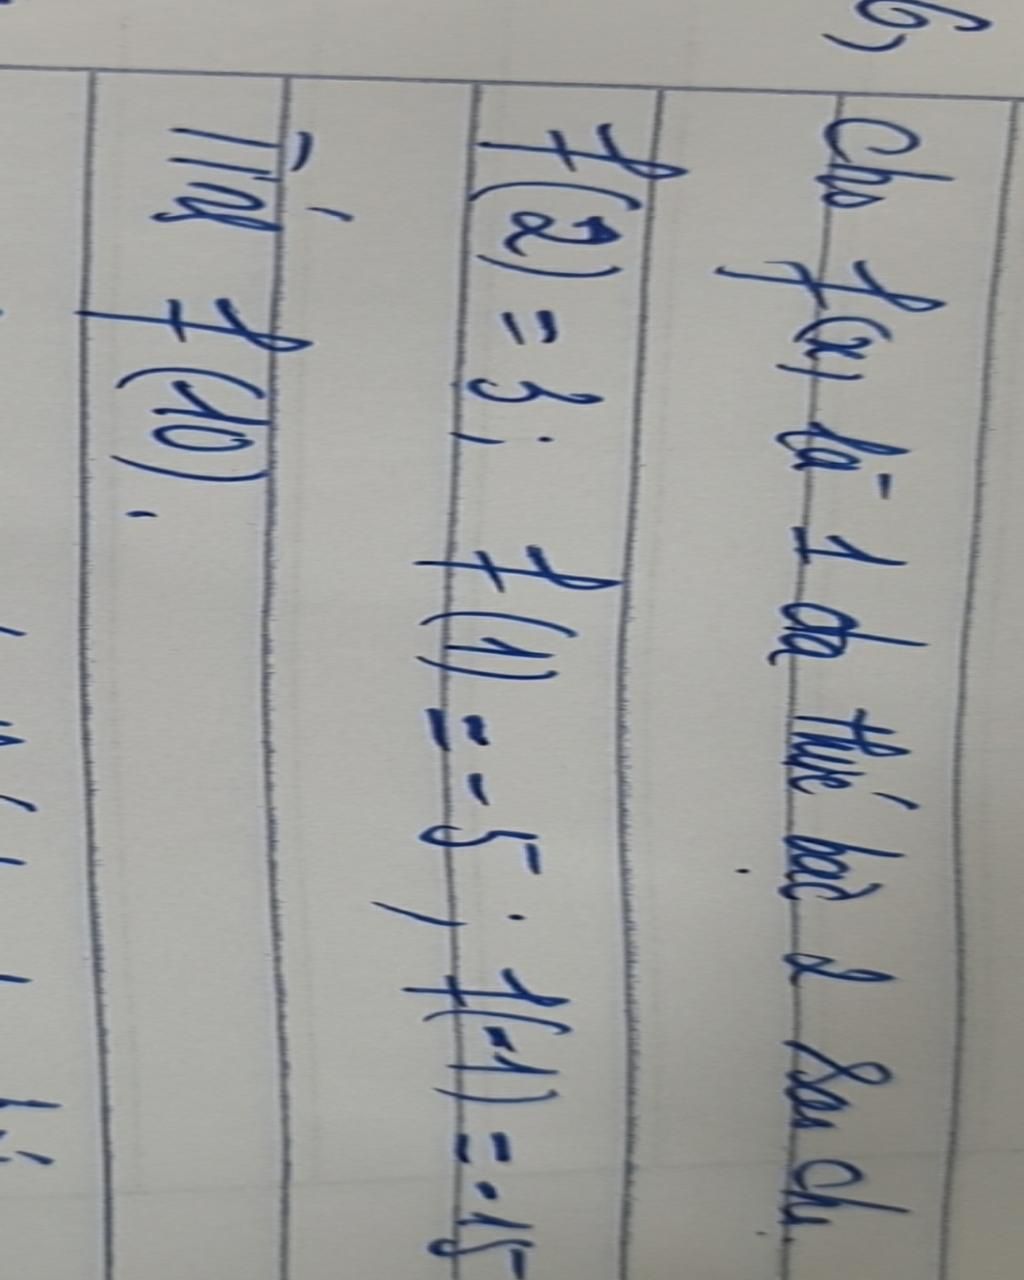 6,
Cho f(x) là 1 đa thức bậc 2 sao cho
f(2) = 3; f(1) = -5; f(-1) = -15
Tính f(10).